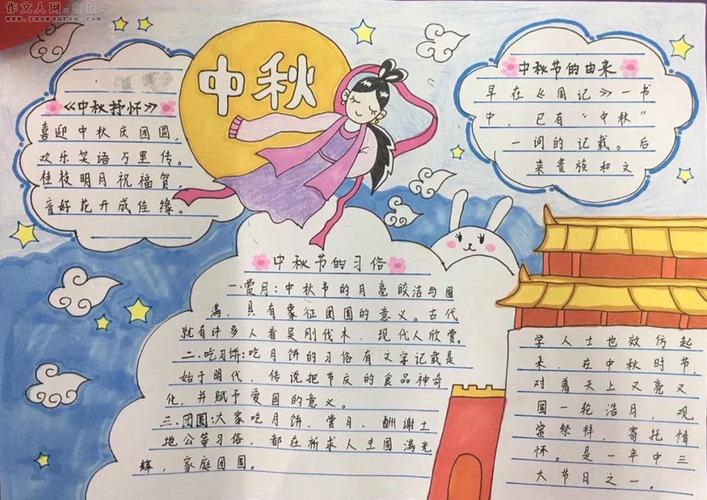 作文人网
中秋
《中秋抒怀》
喜迎中秋庆团圆,
欢乐笑语万里传。
桂枝明月祝福贺,
音好花开成佳缘。
中秋节的由来
早在《周记》一书
中,已有“中秋”
一词的记载。后
来贵族和文
学人士也效仿起
来,在中秋时节,
对着天上又亮又
圆一轮浩月,观
赏祭拜,寄托情
怀。是一年中三
大节日之一。
中秋节的习俗
一.赏月:中秋节的月亮皎洁与圆
满,具有象征团圆的意义。古代
就有许多人看吴刚伐木,现代人欣赏。
二.吃习饼:吃月饼的习俗有文字记载是
始于明代,传说把节庆的食品神奇
化,并赋予爱国的意义。
三.团圆:大家吃月饼、赏月、酬谢土
地公等习俗,都在祈求人生圆满光
辉,家庭团圆。